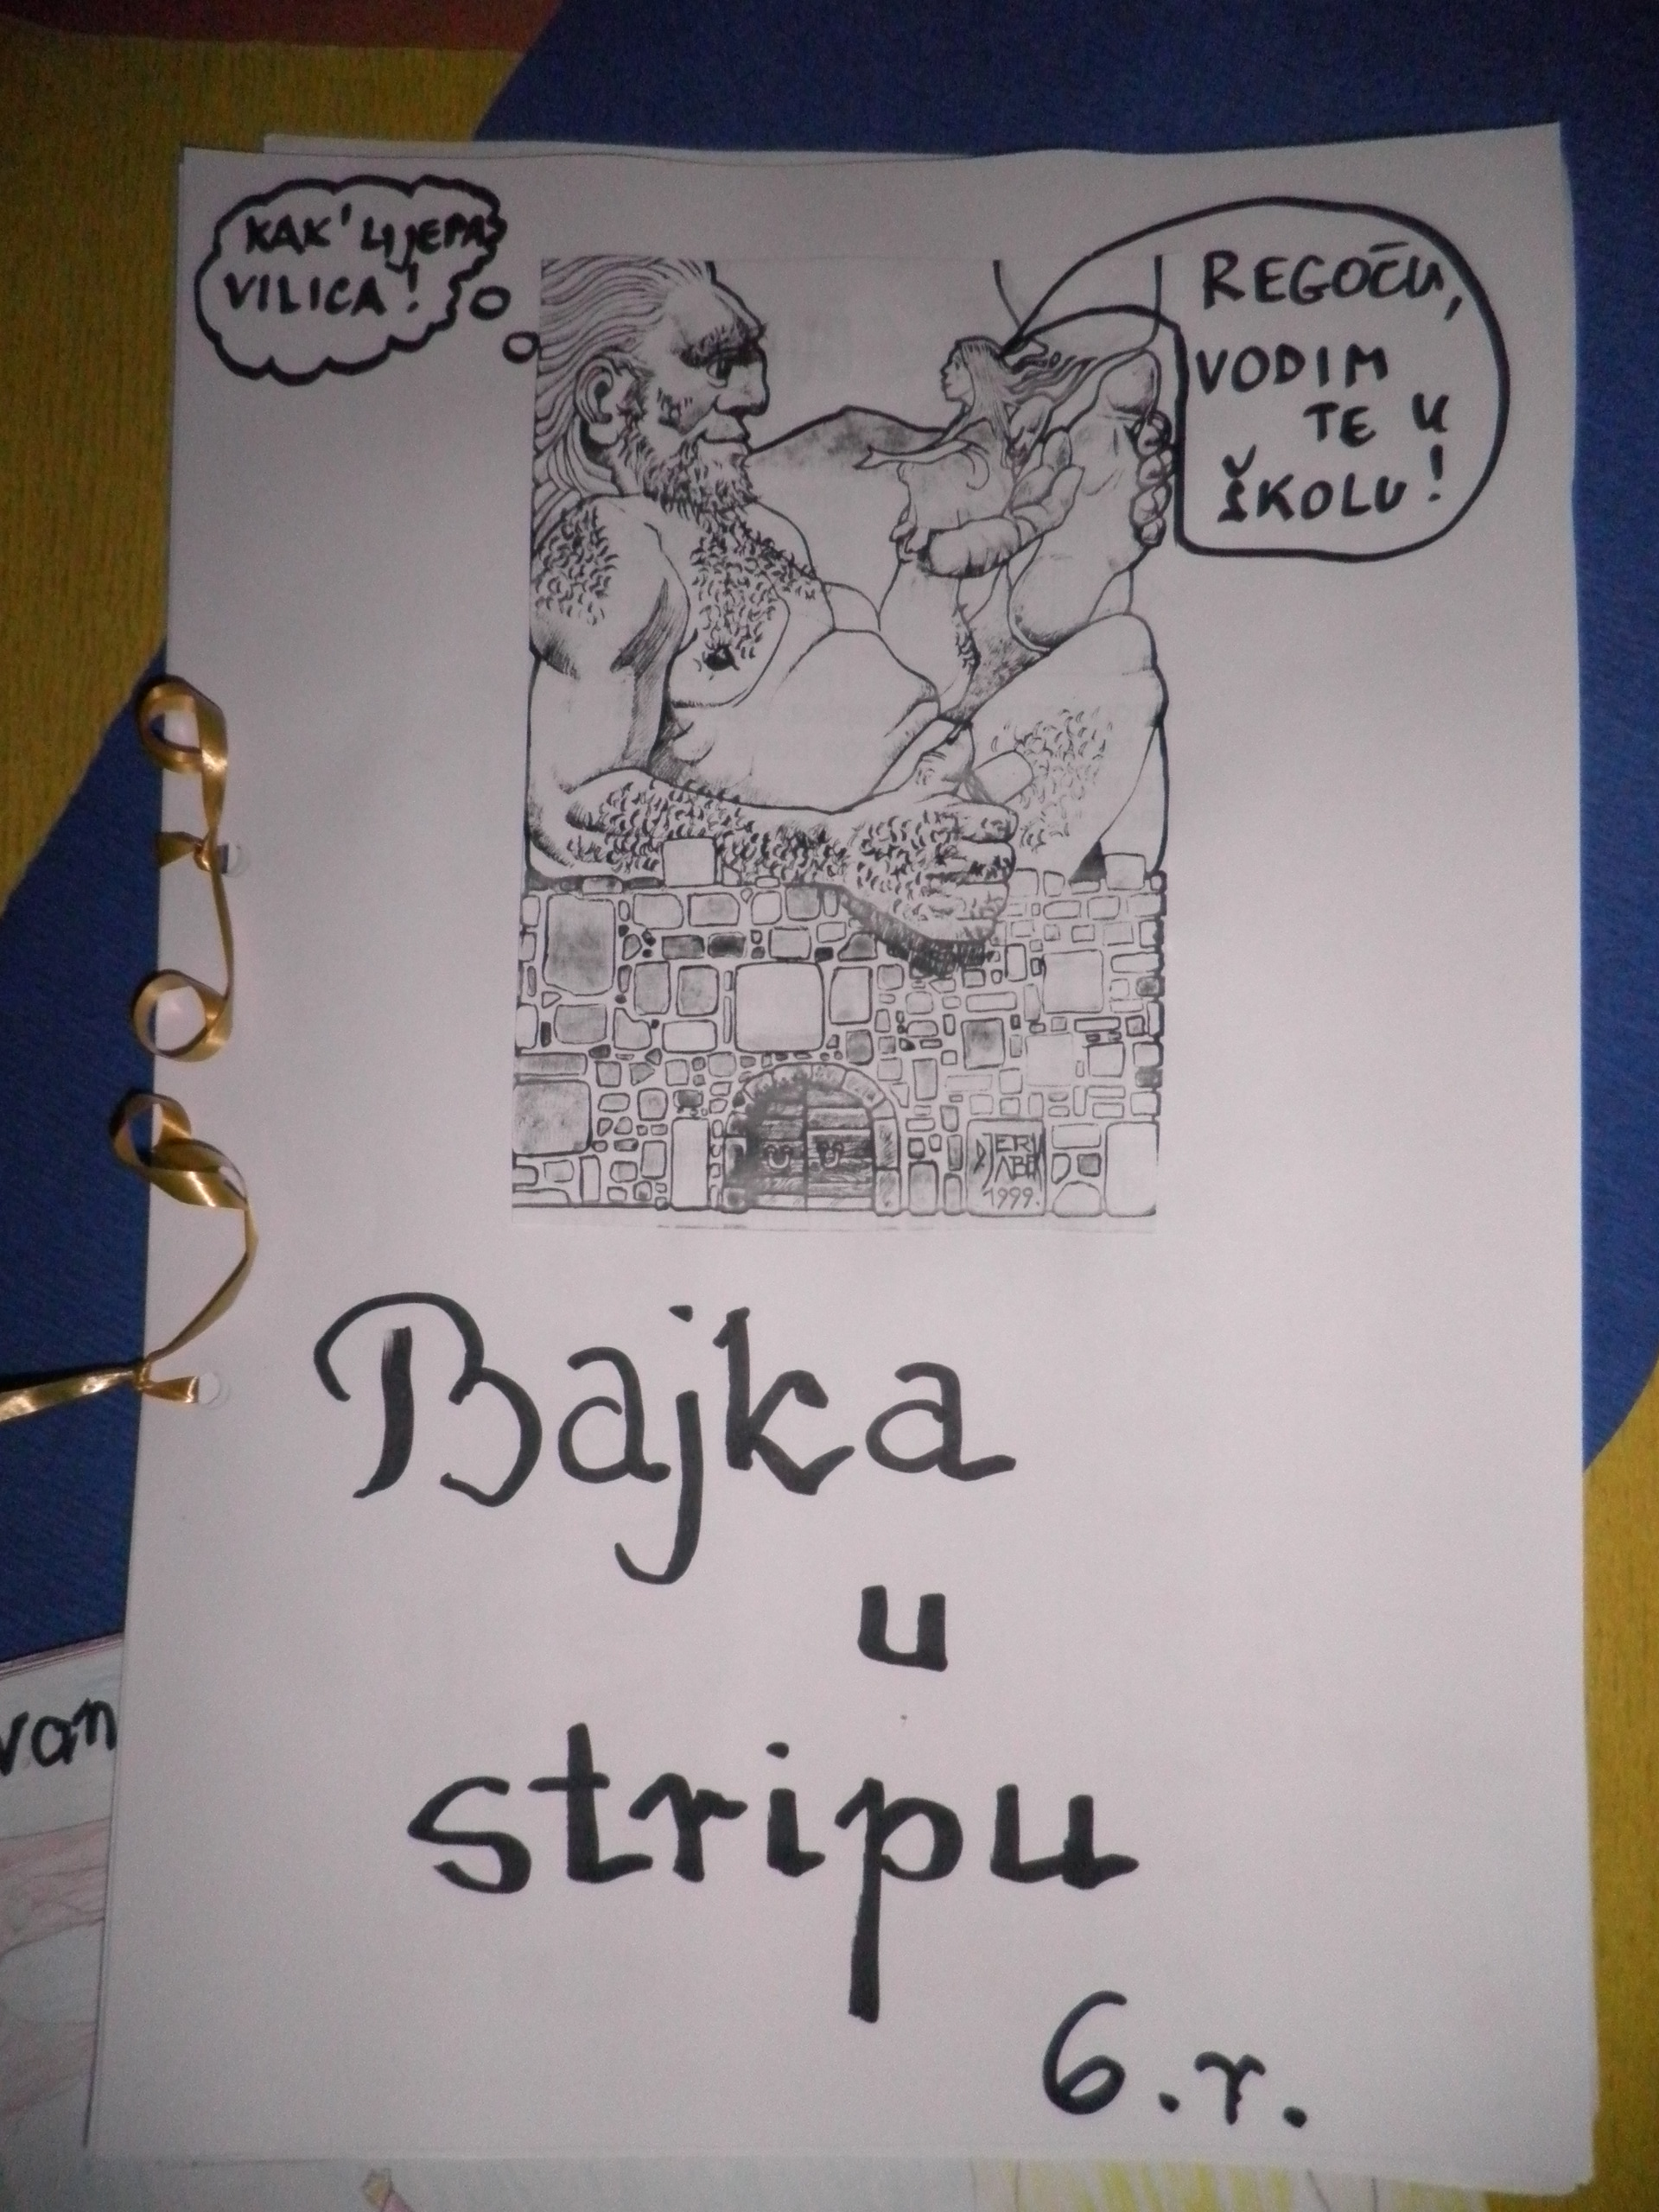 KAK' LIJEPA
VILICA!
REGOČU,
VODIM
TE U
ŠKOLU!
DJERJ
ABEK
1999.
Bajka
u
stripu
6.r.
van